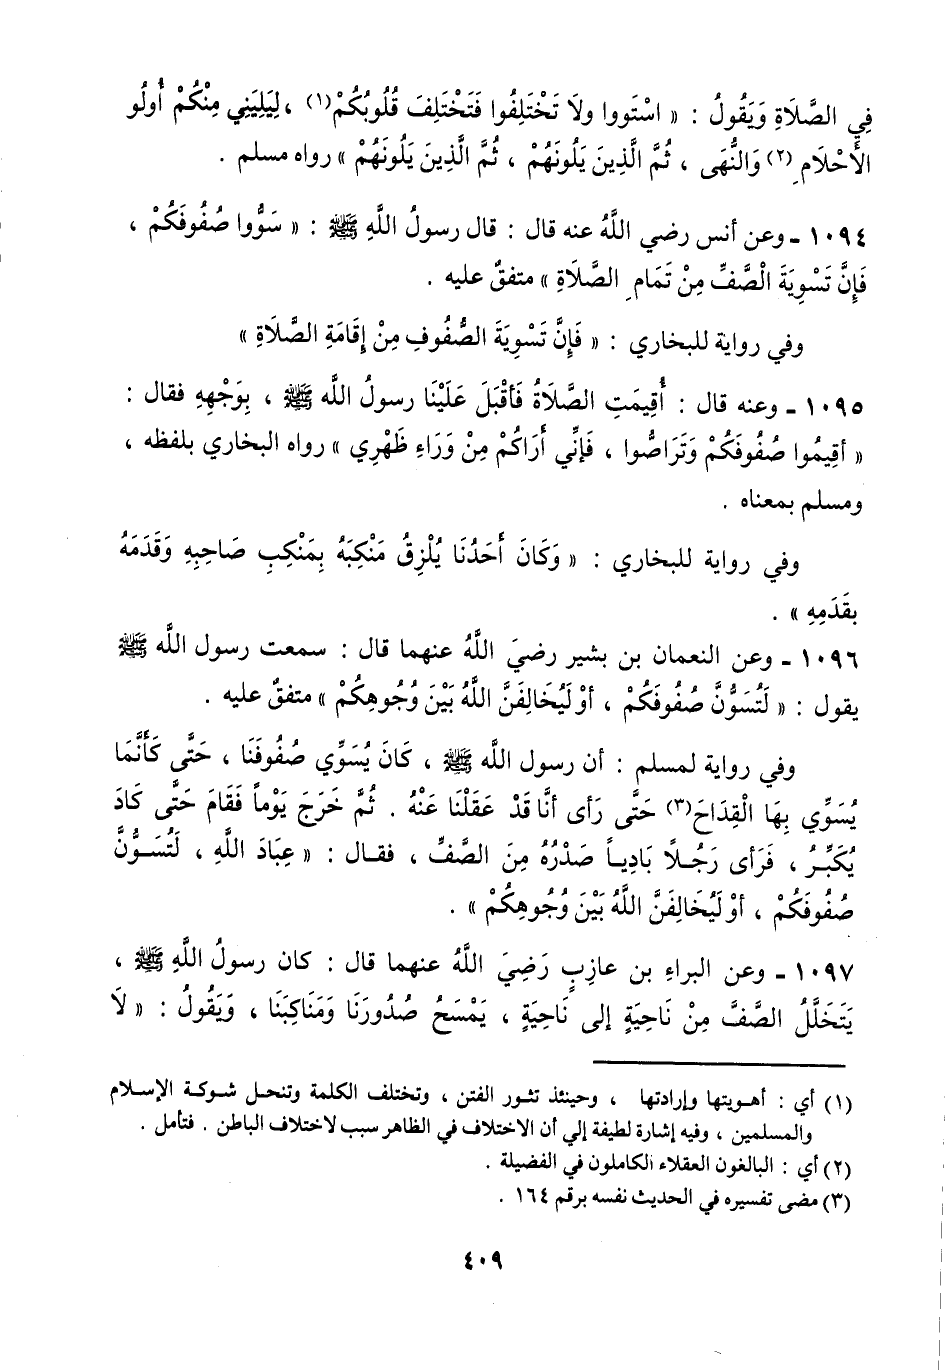 فِي الصَّلَاةِ وَيَقُولُ : « اسْتَووا ولَا تَخْتَلِفُوا فَتَخْتَلِفَ قُلُوبُكُمْ(١) ، لِيَلِيَنِي مِنْكُمْ أُولُو
الأَحْلَامِ(٢) وَالنُّهَى ، ثُمَّ الَّذِينَ يَلُونَهُمْ ، ثُمَّ الَّذِينَ يَلُونَهُمْ » رواه مسلم .
١٠٩٤ ـ وعن أنس رضي اللَّهُ عنه قال : قال رسولُ اللَّهِ ﷺ : « سَوُّوا صُفُوفَكُمْ ،
فَإِنَّ تَسْوِيَةَ الْصَّفِّ مِنْ تَمَامِ الصَّلَاةِ » متفقٌ عليه .
وفي رواية للبخاري : « فَإِنَّ تَسْوِيَةَ الصُّفُوفِ مِنْ إِقَامَةِ الصَّلَاةِ »
١٠٩٥ ـ وعنه قال : أُقِيمَتِ الصَّلاةُ فَأَقْبَلَ عَلَيْنَا رسولُ اللَّه ﷺ ، بِوَجْهِهِ فقال :
« أقِيمُوا صُفُوفَكُمْ وَتَرَاصُّوا ، فَإنِّي أَرَاكُمْ مِنْ وَرَاءِ ظَهْرِي » رواه البخاري بلفظه ،
ومسلم بمعناه .
وفي رواية للبخاري : « وَكَانَ أَحَدُنَا يُلْزِقُ مَنْكِبَهُ بِمَنْكِبِ صَاحِبِهِ وَقَدَمَهُ
بِقَدَمِهِ » .
١٠٩٦ ـ وعن النعمان بن بشير رضيَ اللَّهُ عنهما قال : سمعت رسول اللَّه ﷺ
يقول : « لَتُسَوُّنَّ صُفُوفَكُمْ ، أوْ لَيُخَالِفَنَّ اللَّهُ بَيْنَ وُجُوهِكُمْ » متفقٌ عليه .
وفي رواية لمسلم : أن رسول اللَّه ﷺ ، كَانَ يُسَوِّي صُفُوفَنَا ، حَتَّى كَأَنَّمَا
يُسَوِّي بِهَا الْقِدَاحَ(٣) حَتَّى رَأى أنَّا قَدْ عَقَلْنَا عَنْهُ . ثُمَّ خَرَجَ يَوْماً فَقَامَ حَتَّى كَادَ
يُكَبِّرُ ، فَرَأى رَجُلًا بَادِياً صَدْرُهُ مِنَ الصَّفِّ ، فقال : « عِبَادَ اللَّهِ ، لَتُسَوُّنَّ
صُفُوفَكُمْ ، أوْ لَيُخَالِفَنَّ اللَّهُ بَيْنَ وُجُوهِكُمْ » .
١٠٩٧ ـ وعن البراءِ بن عازبٍ رَضِيَ اللَّهُ عنهما قال : كان رسولُ اللَّهِ ﷺ ،
يَتَخَلَّلُ الصَّفَّ مِنْ نَاحِيَةٍ إلى نَاحِيَةٍ ، يَمْسَحُ صُدُورَنَا وَمَنَاكِبَنَا ، وَيَقُولُ : « لَا
(١) أي : أهويتها وإرادتها ، وحينئذ تثور الفتن ، وتختلف الكلمة وتنحل شوكة الإسلام
والمسلمين ، وفيه إشارة لطيفة إلي أن الاختلاف في الظاهر سبب لاختلاف الباطن . فتأمل .
(٢) أي : البالغون العقلاء الكاملون في الفضيلة .
(٣) مضى تفسيره في الحديث نفسه برقم ١٦٤ .
٤٠٩